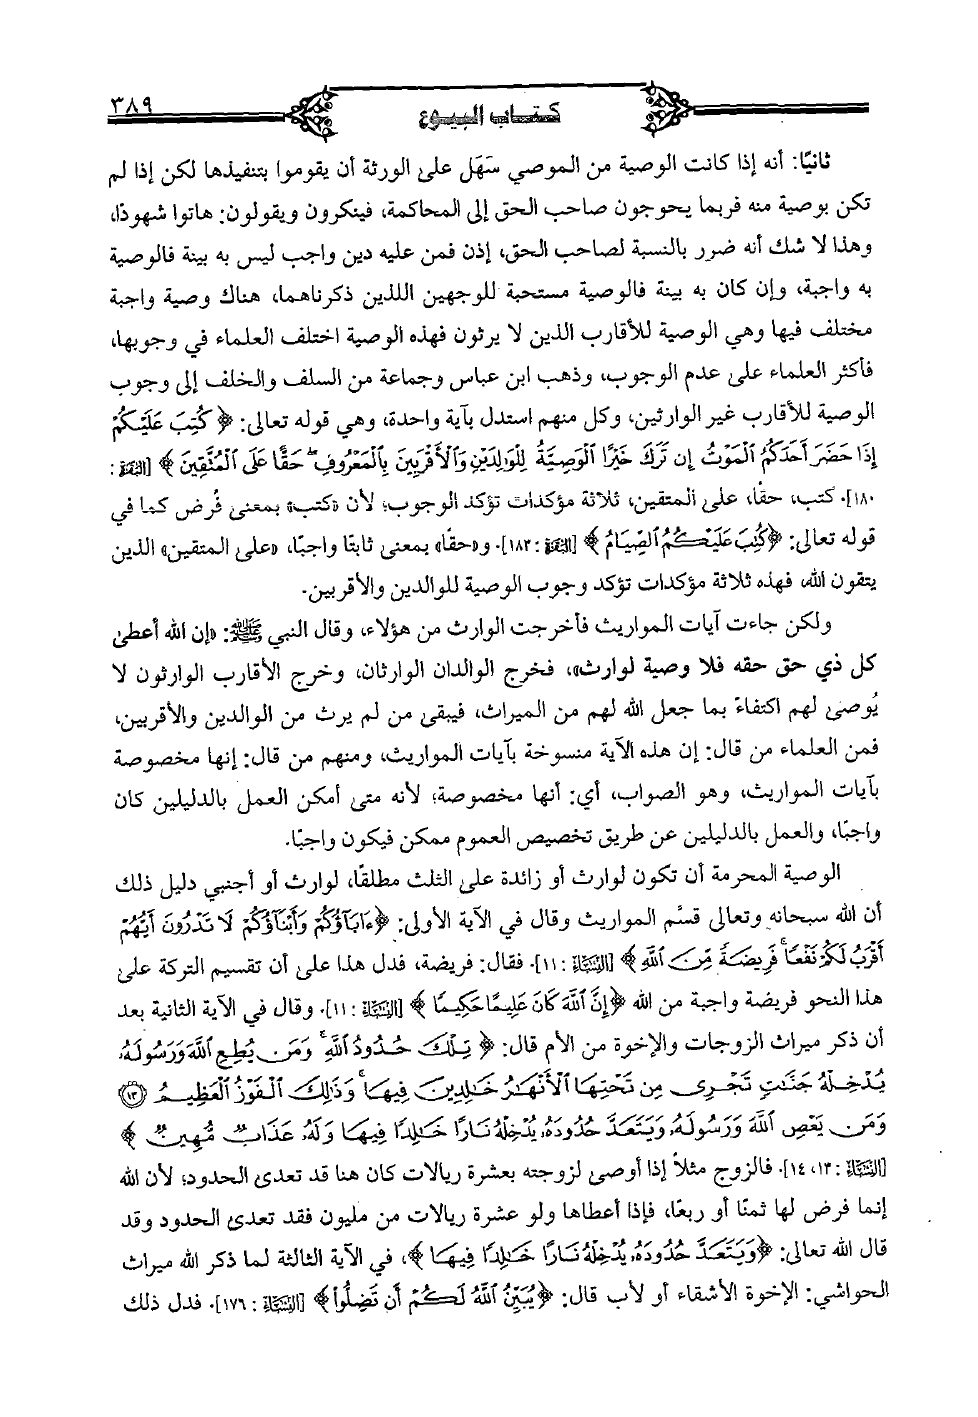 ٣٨٩
كتاب البيوع
ثانيًا: أنه إذا كانت الوصية من الموصي سَهَل على الورثة أن يقوموا بتنفيذها لكن إذا لم
تكن بوصية منه فربما يحوجون صاحب الحق إلى المحاكمة، فينكرون ويقولون: هاتوا شهودًا،
وهذا لا شك أنه ضرر بالنسبة لصاحب الحق، إذن فمن عليه دين واجب ليس به بينة فالوصية
به واجبة، وإن كان به بينة فالوصية مستحبة للوجهين اللذين ذكرناهما، هناك وصية واجبة
مختلف فيها وهي الوصية للأقارب الذين لا يرثون فهذه الوصية اختلف العلماء في وجوبها،
فأكثر العلماء على عدم الوجوب، وذهب ابن عباس وجماعة من السلف والخلف إلى وجوب
الوصية للأقارب غير الوارثين، وكل منهم استدل بآية واحدة، وهي قوله تعالى: ﴿كُتِبَ عَلَيْكُمْ
إِذَا حَضَرَ أَحَدَكُمُ الْمَوْتُ إِن تَرَكَ خَيْرًا الْوَصِيَّةُ لِلْوَالِدَيْنِ وَالْأَقْرَبِينَ بِالْمَعْرُوفِ ۖ حَقًّا عَلَى الْمُتَّقِينَ﴾ [البقرة:
١٨٠]. كتب، حقًا، على المتقين، ثلاثة مؤكدات تؤكد الوجوب؛ لأن «كتب» بمعنى فُرض كما في
قوله تعالى: ﴿كُتِبَ عَلَيْكُمُ الصِّيَامُ﴾ [البقرة: ١٨٣]. و«حقًا» بمعنى ثابتًا واجبًا، «على المتقين» الذين
يتقون الله، فهذه ثلاثة مؤكدات تؤكد وجوب الوصية للوالدين والأقربين.
ولكن جاءت آيات المواريث فأخرجت الوارث من هؤلاء، وقال النبي ﷺ: «إن الله أعطى
كل ذي حق حقه فلا وصية لوارث»، فخرج الوالدان الوارثان، وخرج الأقارب الوارثون لا
يُوصى لهم اكتفاءً بما جعل الله لهم من الميراث، فيبقى من لم يرث من الوالدين والأقربين،
فمن العلماء من قال: إن هذه الآية منسوخة بآيات المواريث، ومنهم من قال: إنها مخصوصة
بآيات المواريث، وهو الصواب، أي: أنها مخصوصة؛ لأنه متى أمكن العمل بالدليلين كان
واجبًا، والعمل بالدليلين عن طريق تخصيص العموم ممكن فيكون واجبًا.
الوصية المحرمة أن تكون لوارث أو زائدة على الثلث مطلقًا، لوارث أو أجنبي دليل ذلك
أن الله سبحانه وتعالى قسَّم المواريث وقال في الآية الأولى: ﴿ءَابَآؤُكُمْ وَأَبْنَآؤُكُمْ لَا تَدْرُونَ أَيُّهُمْ
أَقْرَبُ لَكُمْ نَفْعًا ۚ فَرِيضَةً مِّنَ اللَّهِ﴾ [النساء: ١١]. فقال: فريضة، فدل هذا على أن تقسيم التركة على
هذا النحو فريضة واجبة من الله ﴿إِنَّ اللَّهَ كَانَ عَلِيمًا حَكِيمًا﴾ [النساء: ١١]. وقال في الآية الثانية بعد
أن ذكر ميراث الزوجات والإخوة من الأم قال: ﴿تِلْكَ حُدُودُ اللَّهِ ۚ وَمَن يُطِعِ اللَّهَ وَرَسُولَهُ
يُدْخِلْهُ جَنَّاتٍ تَجْرِي مِن تَحْتِهَا الْأَنْهَارُ خَالِدِينَ فِيهَا ۚ وَذَٰلِكَ الْفَوْزُ الْعَظِيمُ ﴿١٣﴾
وَمَن يَعْصِ اللَّهَ وَرَسُولَهُ وَيَتَعَدَّ حُدُودَهُ يُدْخِلْهُ نَارًا خَالِدًا فِيهَا وَلَهُ عَذَابٌ مُّهِينٌ﴾
[النساء: ١٣، ١٤]. فالزوج مثلاً إذا أوصى لزوجته بعشرة ريالات كان هنا قد تعدى الحدود؛ لأن الله
إنما فرض لها ثمنًا أو ربعًا، فإذا أعطاها ولو عشرة ريالات من مليون فقد تعدى الحدود وقد
قال الله تعالى: ﴿وَيَتَعَدَّ حُدُودَهُ يُدْخِلْهُ نَارًا خَالِدًا فِيهَا﴾، في الآية الثالثة لما ذكر الله ميراث
الحواشي: الإخوة الأشقاء أو لأب قال: ﴿يُبَيِّنُ اللَّهُ لَكُمْ أَن تَضِلُّوا﴾ [النساء: ١٧٦]. فدل ذلك